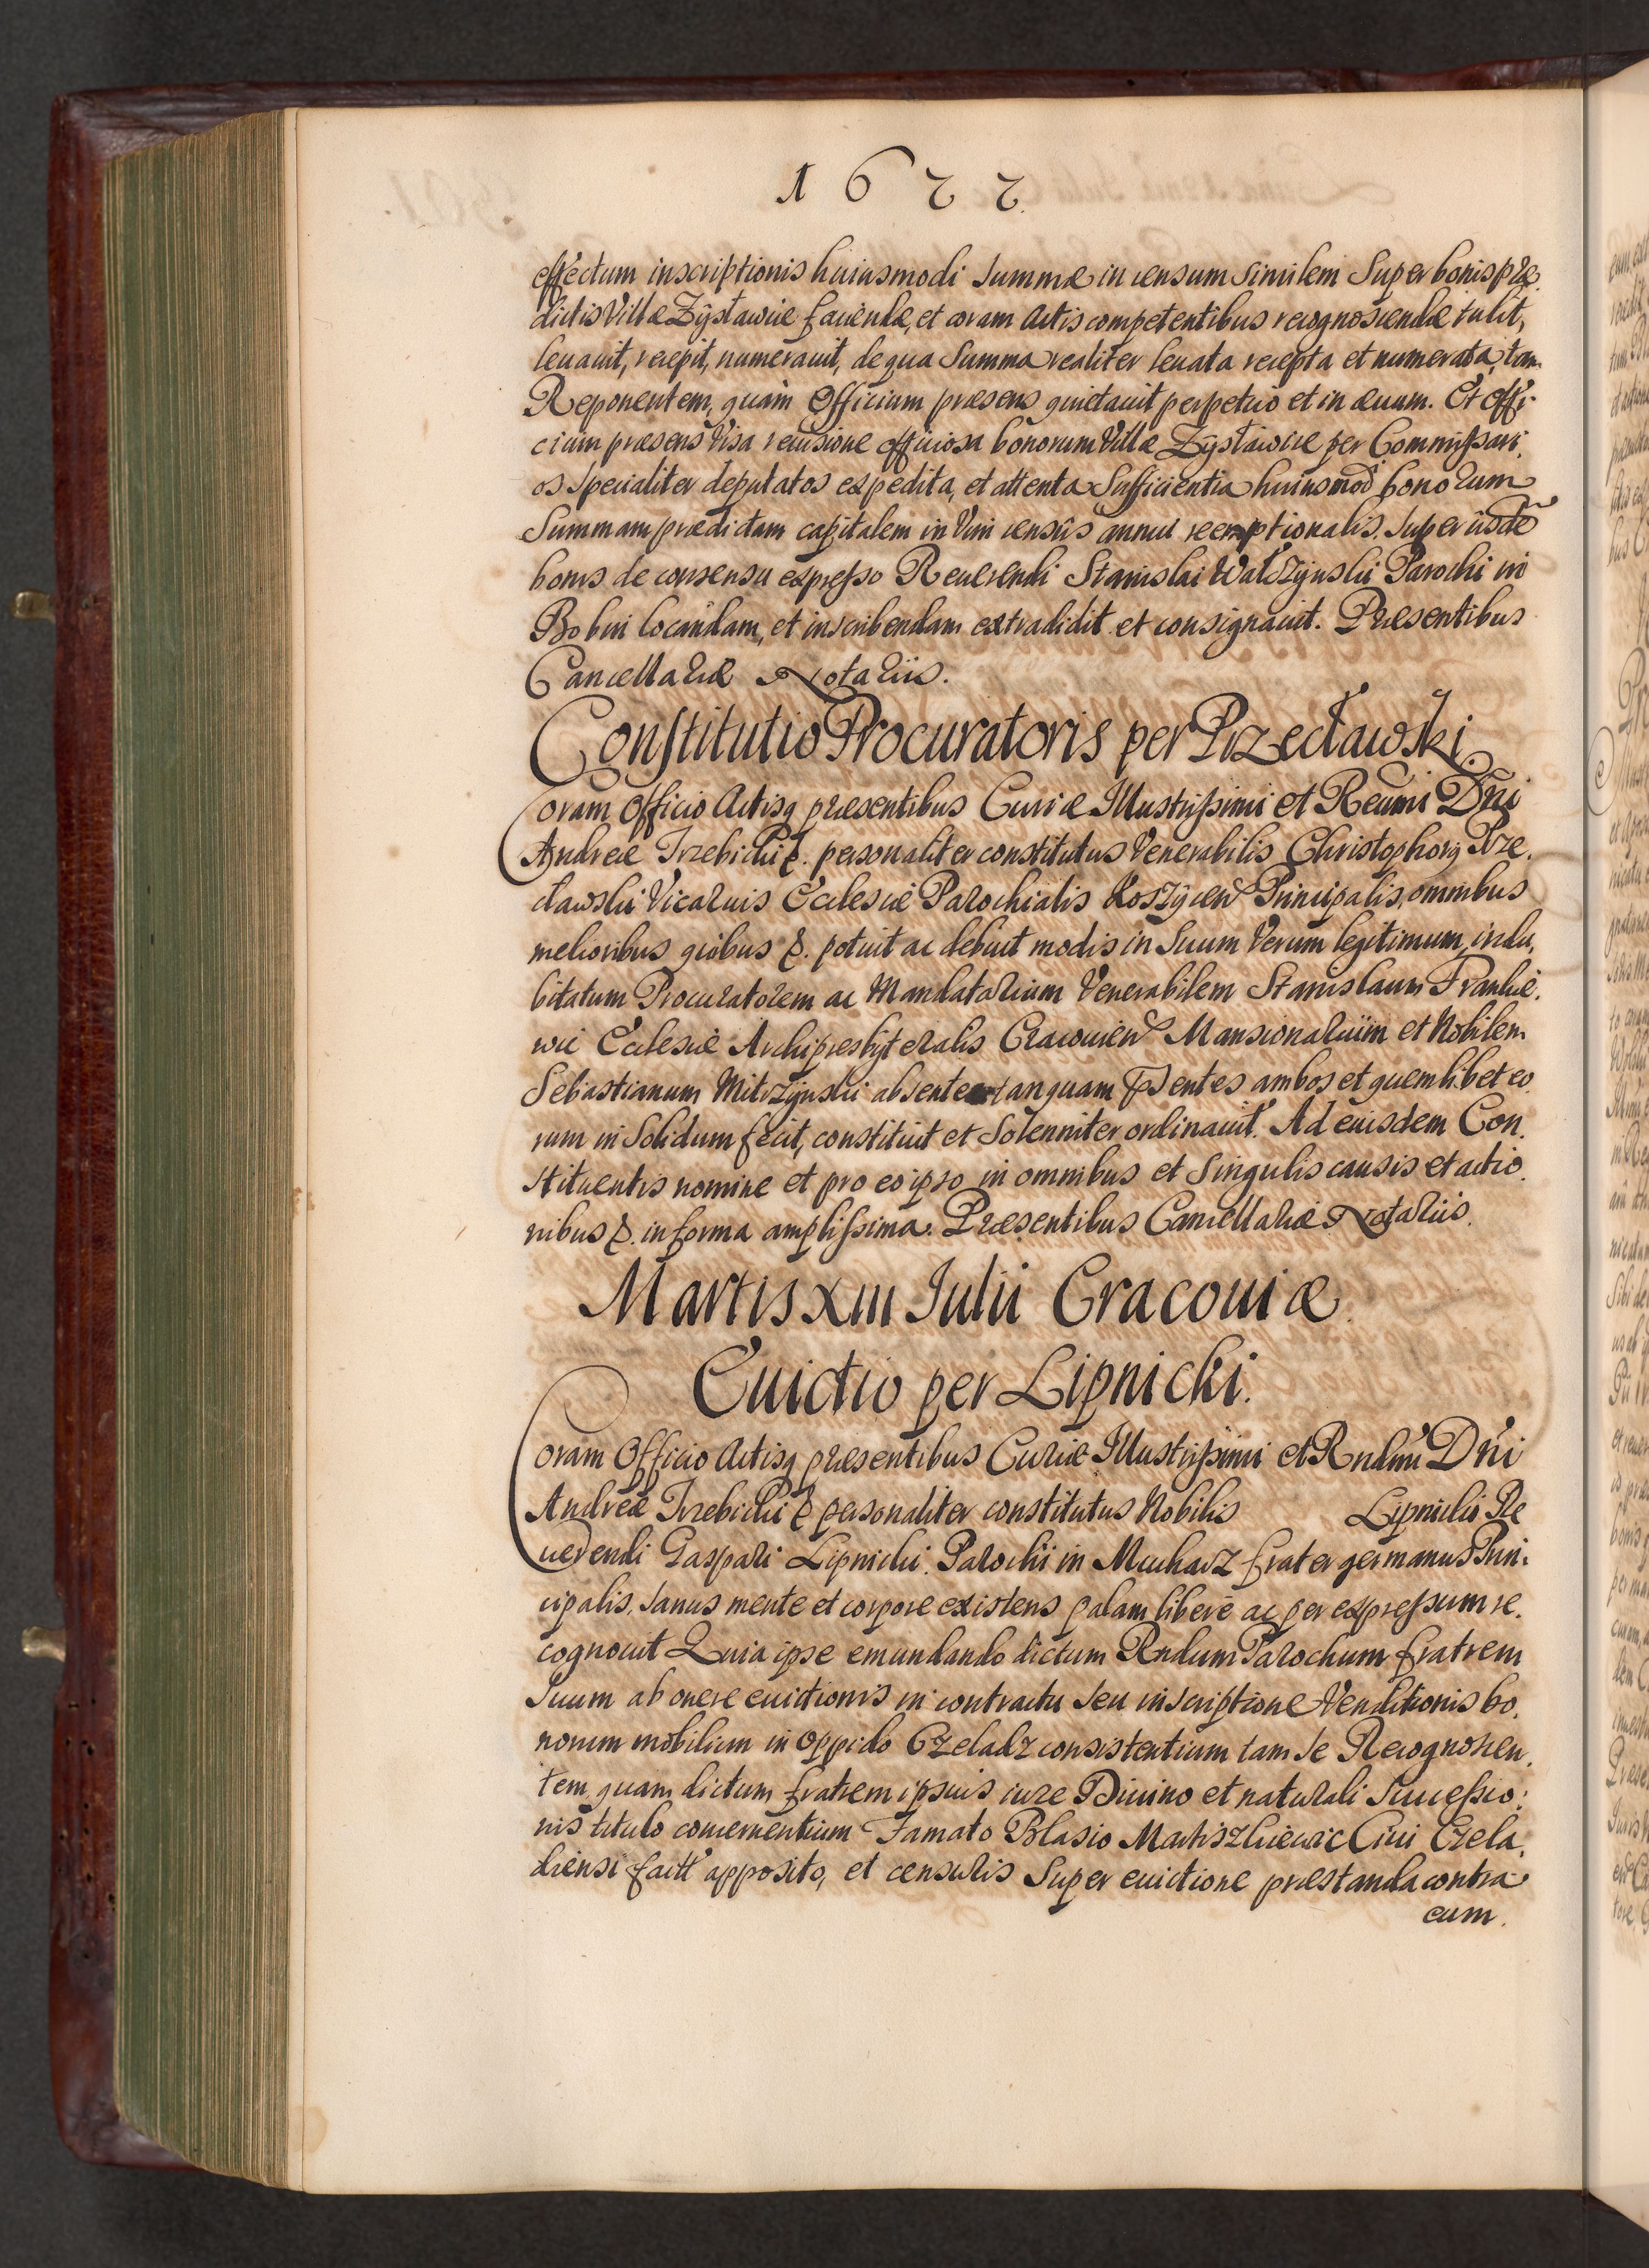 1677.
effectum inscriptionis huiusmodi Summæ in censum similem Super bonis præ.
dictis Villæ Zÿsławice faciendæ, et coram Actis competentibus recognoscendæ tulit,
leuauit, recepit, numerauit, de qua Summa realiter leuata recepta et numerata, tam
Reponentem, quàm Officium præsens quietauit perpetuo et in æuum. Et offi-
cium præsens Visa reuisione officiosa bonorum Villæ Zÿsławice per Commissari.
os specialiter deputatos expedita, et attenta Sufficientia huiusmodi bonorum
Summam prædictam capitalem in Vim censûs annui reemptionalis, super iisdē
bonis de consensu expresso Reuerendi Stanislai Parochi in
Bobin locandam, et inscribendam extradidit et consignauit. Præsentibus
Cancellariæ Notariis.
Constitutio Procuratoris per Przecławski
Coram Officio Actisq præsentibus Curiæ Illustrissimi et Reuᵐⁱ Dn̄i
Andreæ Trzebicki &. personaliter constitutus Venerabilis Christophorq Prze.
cławski Vicarius Ecclesiæ Parochialis Koszÿcen̄ Principalis, omnibus
melioribus quibus &. potuit ac debuit modis in Suum Verum legitimum, indu,
bitatum Procuratorem ac Mandatarium Venerabilem Stanislaum Frankie.
wic Ecclesiæ Archipresbÿteralis Cracouien̄ Mansionarium et Nobilem
Sebastianum Mitczÿnski absentes tanquam præsentes ambos et quemlibet eo.
rum in Solidum fecit, constituit et Solenniter ordinauit. Ad eiusdem Con.
stituentis nomine et pro eo ipso in omnibus et Singulis causis et actio.
nibus &. in forma amplissima. Præsentibus Cancellariæ Notariis.
Martis XIII Iulii Cracouiæ.
Euictio per Lipnicki.
Coram Officio Actisq præsentibus Curiæ Illustrissimi et Rndmi Dn̄i
Andreæ Trzebicki & personaliter constitutus Nobilis Lipnicki Re
uerendi Gaspari Lipnicki. Parochi in Mucharz frater germanus Prin.
cipalis, sanus mente et corpore existens palam libere ac per expressum re.
cognouit Quia ipse emundando dictum Rndum Parochum fratrem
Suum ab onere euictionis in contractu seu inscriptione Venditionis bo.
norum mobilium in Oppido Czeladz consistentium tam se Recognoscen.
tem quam dictum fratrem ipsius iure Diuino et naturali Successio:
nis titulo concernentium Famato Blasio Ciui Czela.
diensi fact' apposito, et censuris Super euictione præstanda contra
eum.